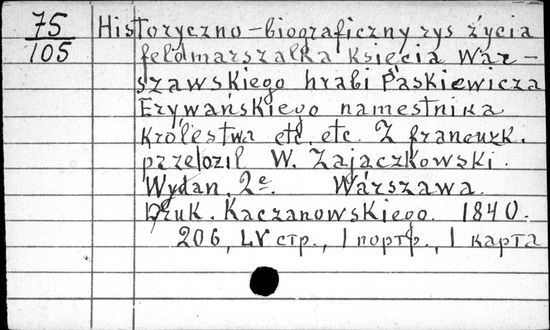 75
105
Historyczno-biograficzny rys życia
feldmarszałka Księcia War-
szawskiego hrabi Paskiewicza
Erywańskiego namestnika
Królestwa etc. etc. Z francuzk.
przełozil W. Zajączkowski.
Wydan. 2e. Warszawa.
Druk. Kaczanowskiego. 1840.
206, LV стр., 1 портр., 1 карта